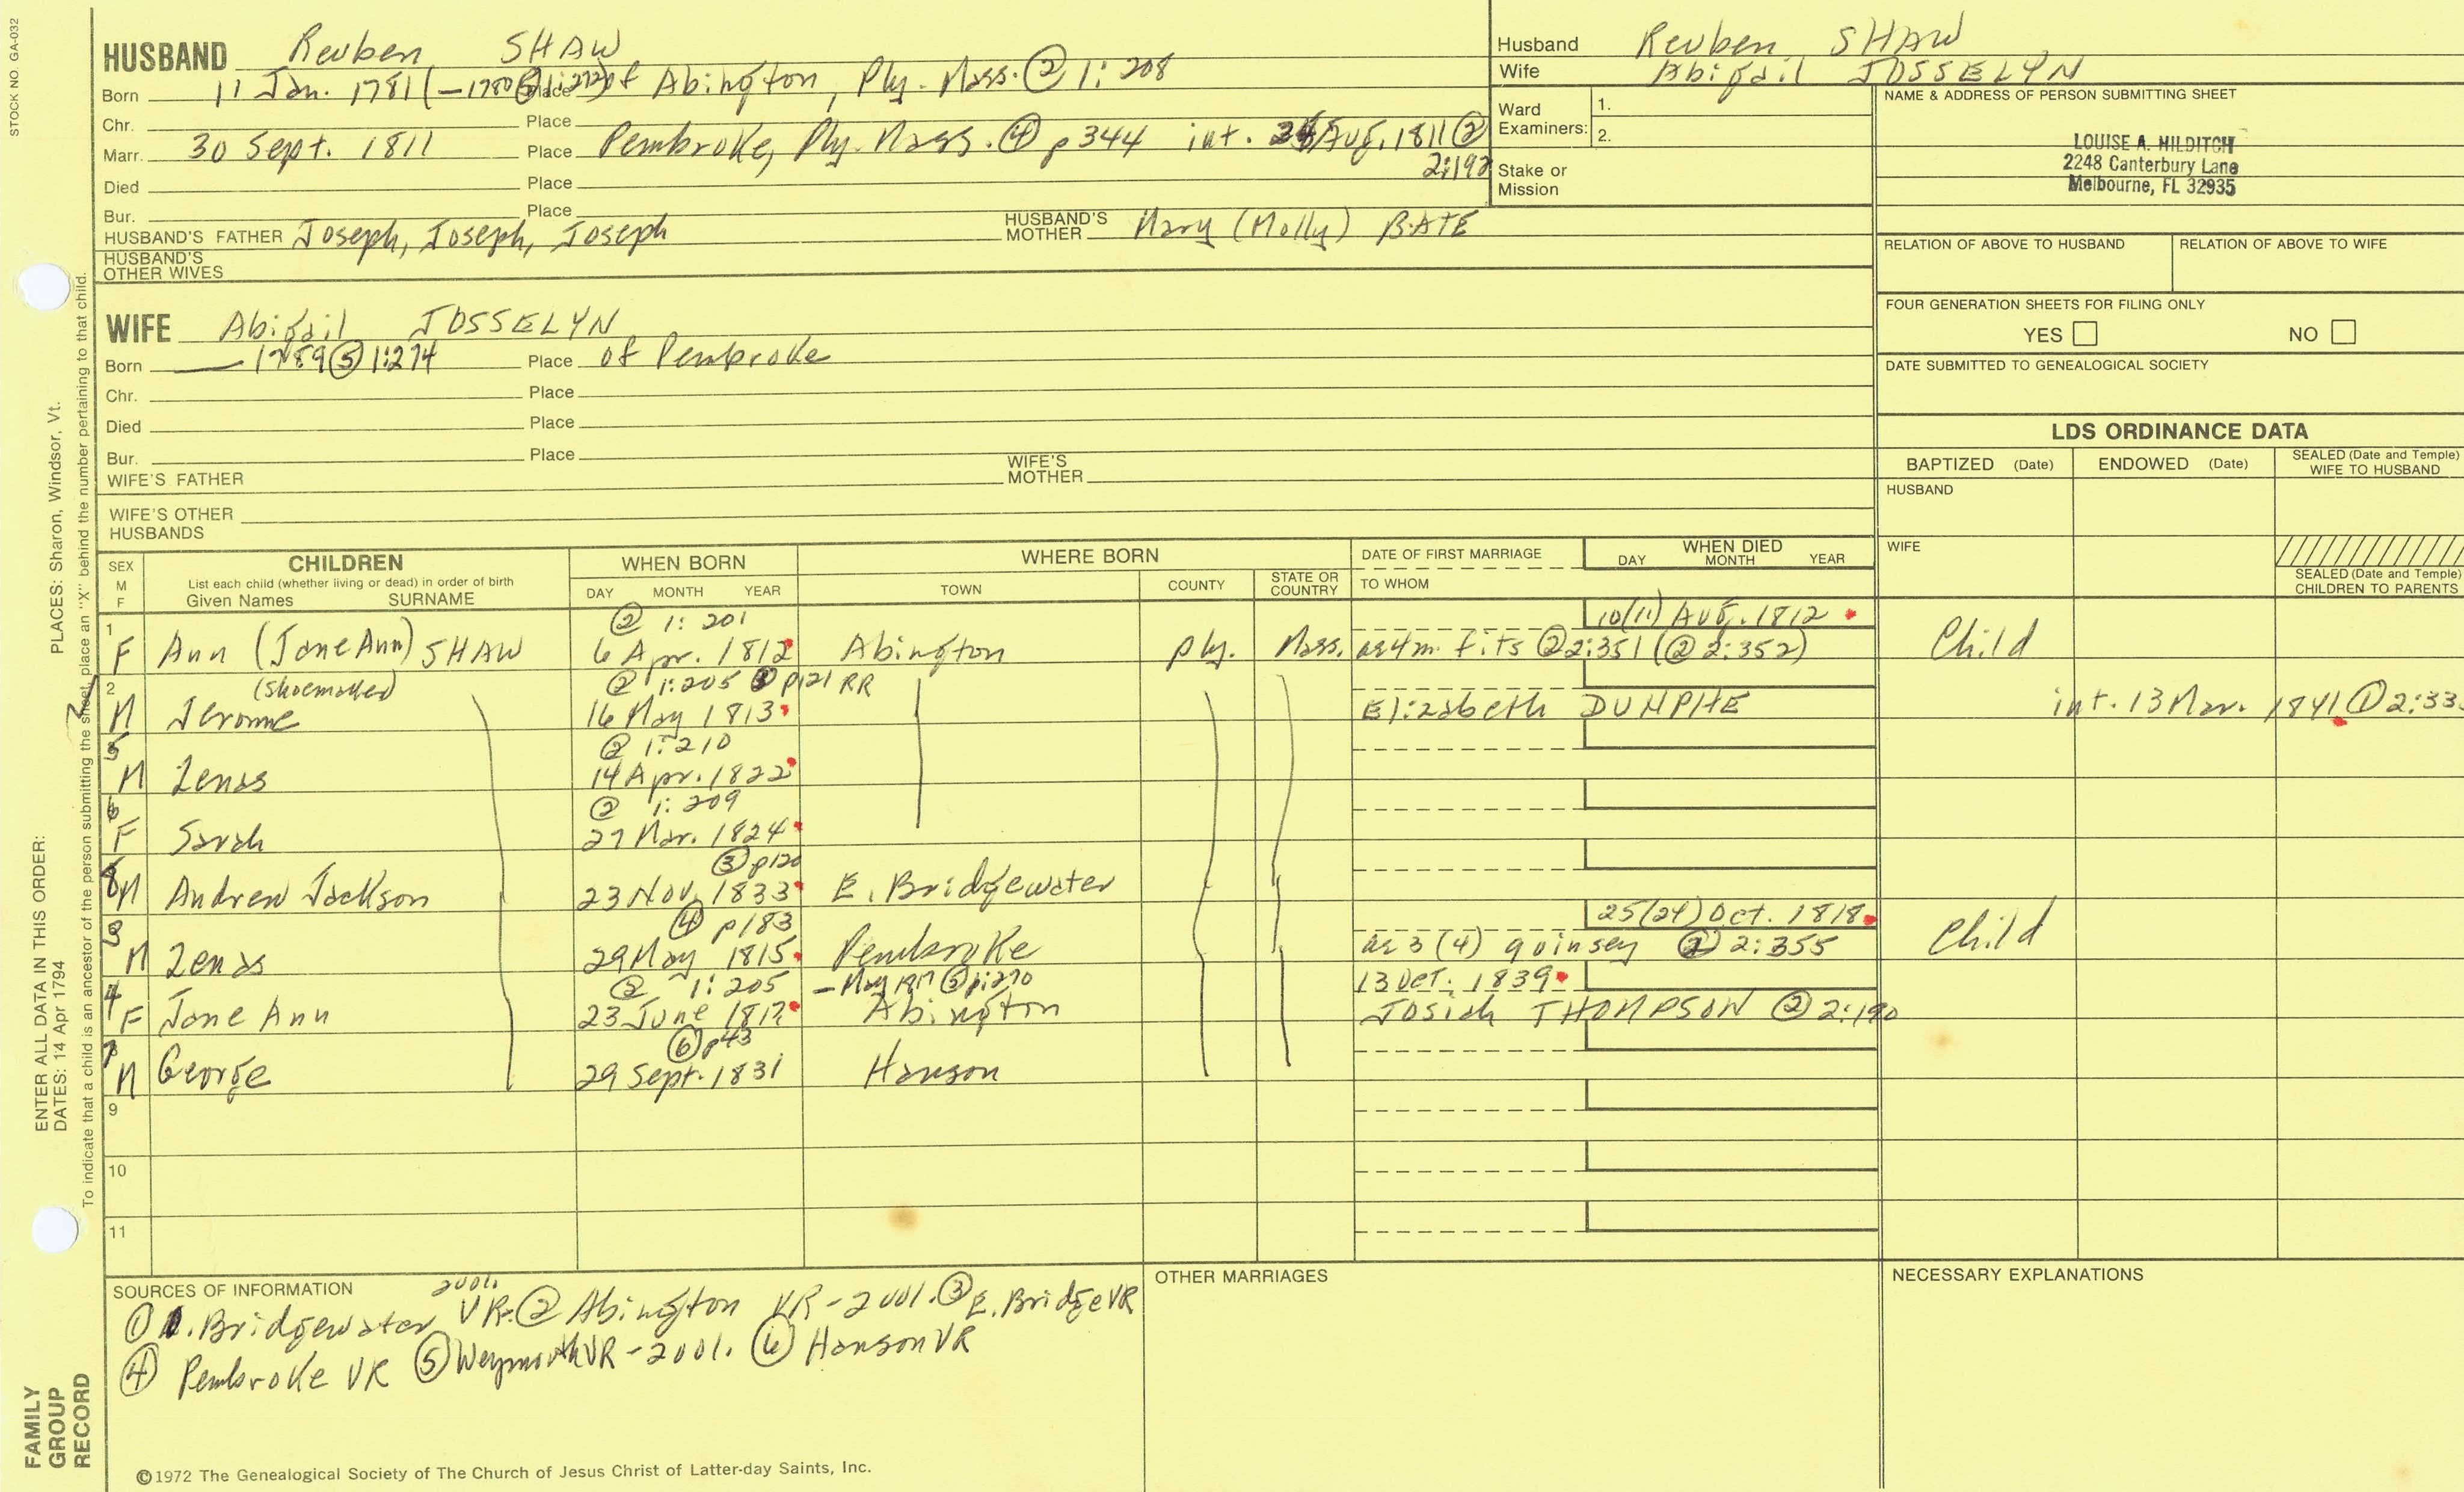 STOCK NO. GA-032
HUSBAND Reuben SHAW
Born 11 Jan. 1781 (-1780 Place of Abington, Ply. Mass. ② 1:208
Chr. Place
Marr. 30 Sept. 1811 Place Pembroke, Ply. Mass. ④ p344 int. Aug. 1811 ②
2:192
Died Place
Bur. Place
HUSBAND'S FATHER Joseph, Joseph, Joseph HUSBAND'S MOTHER Mary (Molly) BATE
HUSBAND'S
OTHER WIVES
Husband Reuben SHAW
Wife Abigail JOSSELYN
Ward
Examiners: 1.
2.
Stake or
Mission
NAME & ADDRESS OF PERSON SUBMITTING SHEET
LOUISE A. MILDITCH
2248 Canterbury Lane
Melbourne, FL 32935
RELATION OF ABOVE TO HUSBAND RELATION OF ABOVE TO WIFE
FOUR GENERATION SHEETS FOR FILING ONLY
YES NO
DATE SUBMITTED TO GENEALOGICAL SOCIETY
WIFE Abigail JOSSELYN
Born — 1789 ⑤ 1:274 Place of Pembroke
Chr. Place
Died Place
Bur. Place
WIFE'S FATHER WIFE'S MOTHER
WIFE'S OTHER
HUSBANDS
LDS ORDINANCE DATA
BAPTIZED (Date) ENDOWED (Date) SEALED (Date and Temple)
WIFE TO HUSBAND
HUSBAND
WIFE
SEALED (Date and Temple)
CHILDREN TO PARENTS
SEX
M
F
CHILDREN
List each child (whether living or dead) in order of birth
Given Names SURNAME
WHEN BORN
DAY MONTH YEAR
WHERE BORN
TOWN COUNTY STATE OR
COUNTRY
DATE OF FIRST MARRIAGE
TO WHOM
WHEN DIED
DAY MONTH YEAR
② 1: 201 10(11) Aug. 1812
1 F Ann (Jane Ann) SHAW 6 Apr. 1812 Abington Ply. Mass. as 4m. fits @ 2:351 (@ 2:352) Child
(shoemaker) ② 1:205 ③ p121 RR
2 M Jerome 16 May 1813 Elizabeth DUNPHE int. 13 Mar. 1841 ② 2:33
② 1:210
5 M Zenas 14 Apr. 1822
② 1: 209
6 F Sarah 27 Mar. 1824
③ p120
8 M Andrew Jackson 23 Nov. 1833 E. Bridgewater
④ p183 25(24) Oct. 1818
3 M Zenas 29 May 1815 Pembroke as 3 (4) quinsey ② 2:355 Child
② 1: 205 – May 1817 1:270 13 Oct. 1839
4 F Jane Ann 23 June 1817 Abington Josiah THOMPSON ② 2:190
⑥ p43
7 M George 29 Sept. 1831 Hanson
9
10
11
SOURCES OF INFORMATION
① Bridgewater VR. 2 vol. ② Abington VR - 2 vol. ③ E. Bridge VR
④ Pembroke VR ⑤ Weymouth VR - 2 vol. ⑥ Hanson VR
OTHER MARRIAGES
NECESSARY EXPLANATIONS
©1972 The Genealogical Society of The Church of Jesus Christ of Latter-day Saints, Inc.
FAMILY
GROUP
RECORD
ENTER ALL DATA IN THIS ORDER:
DATES: 14 Apr 1794 PLACES: Sharon, Windsor, Vt.
To indicate that a child is an ancestor of the person submitting the sheet, place an "X" behind the number pertaining to that child.